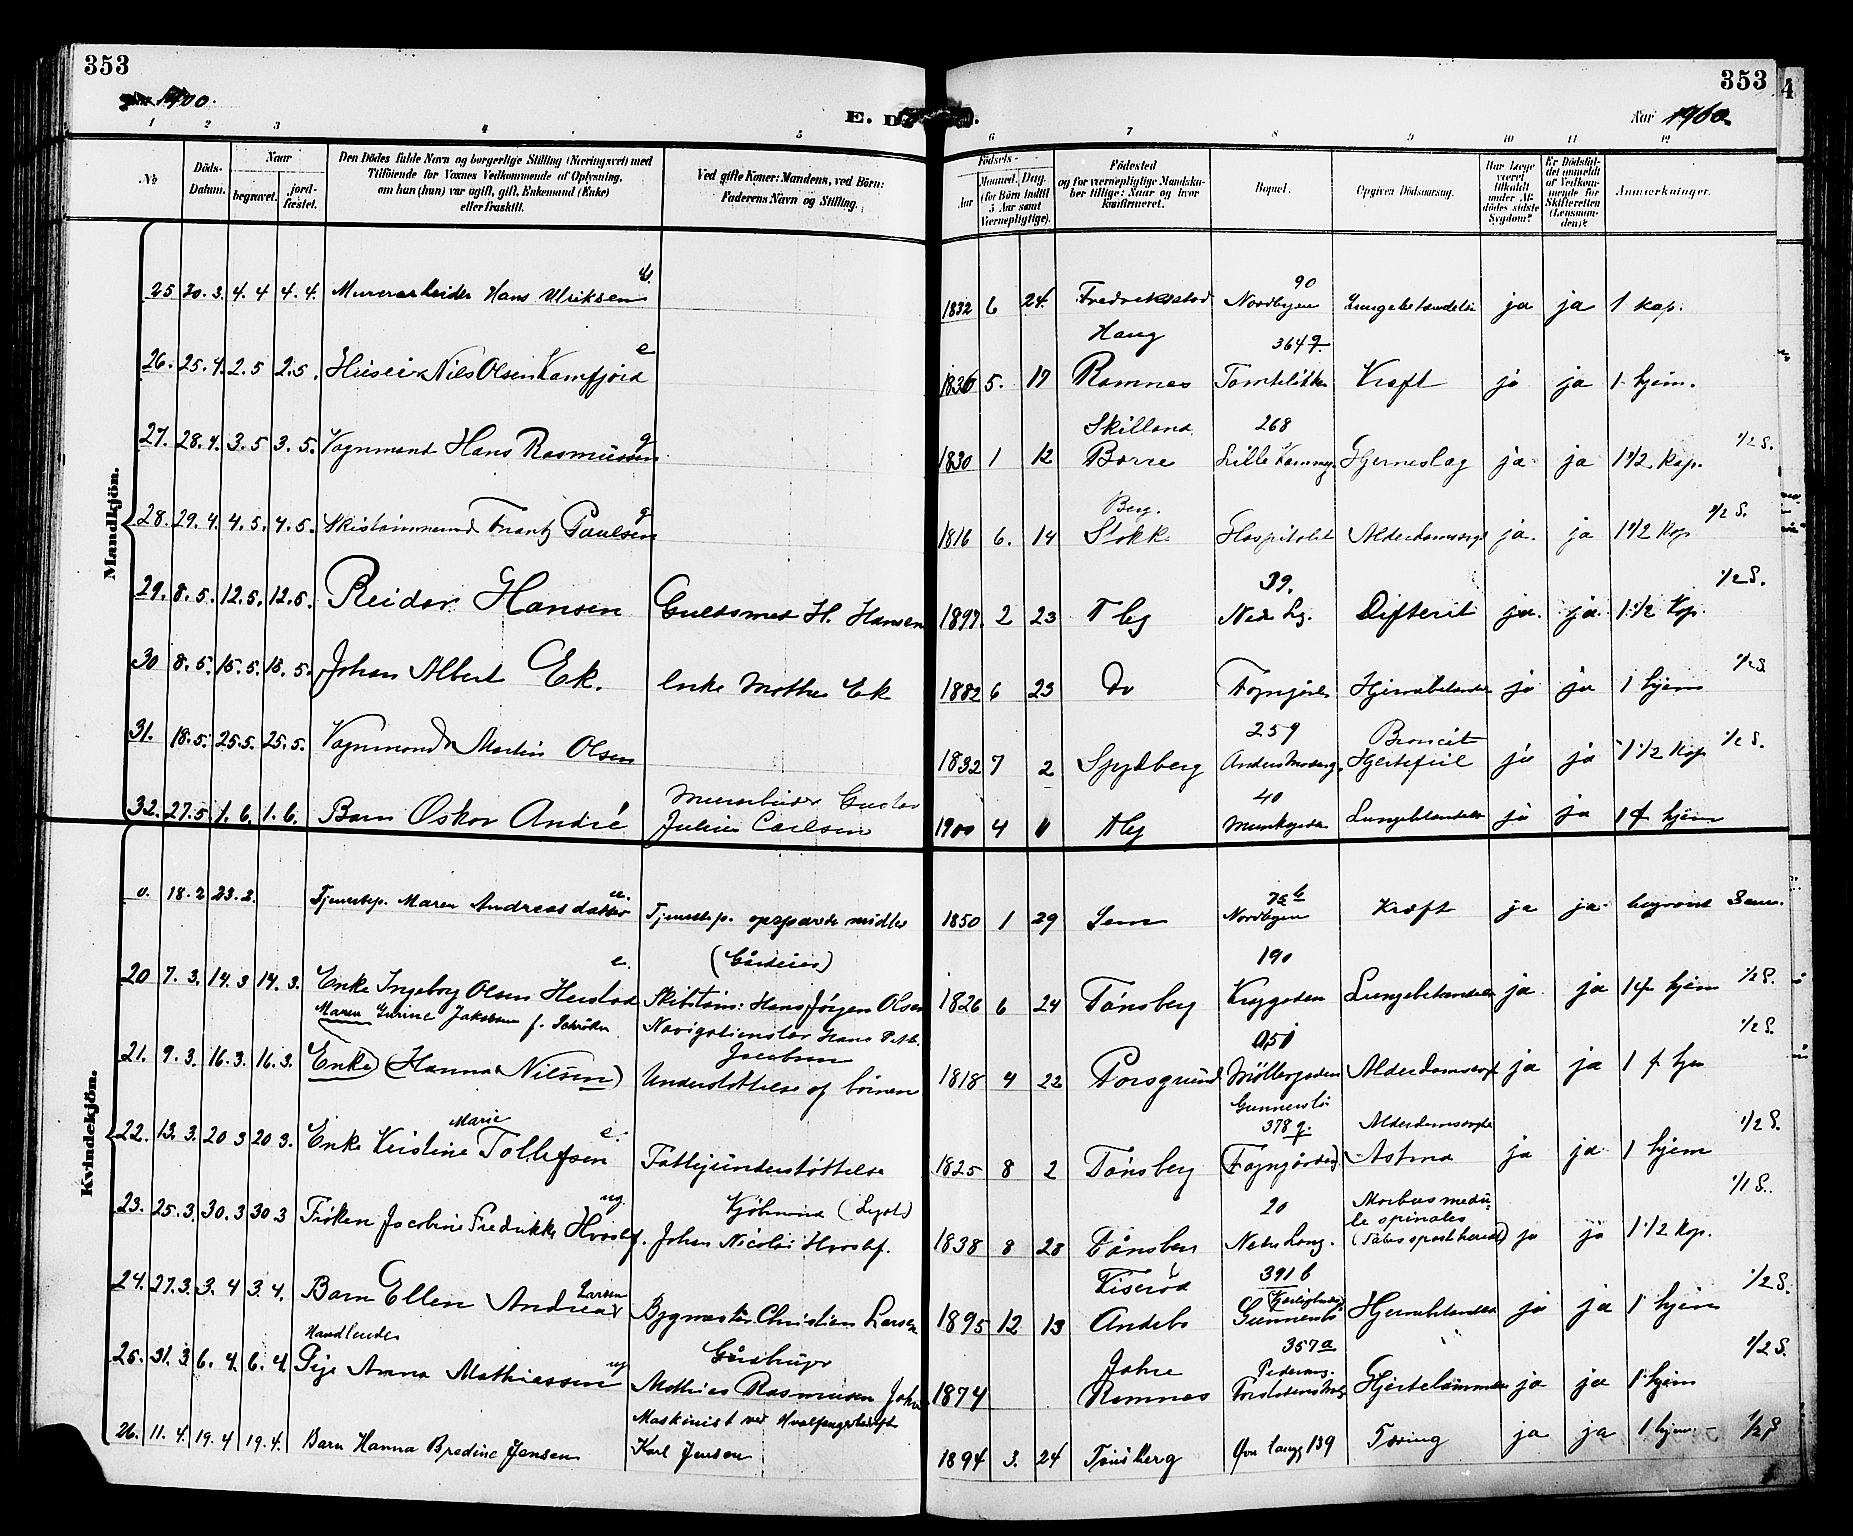 353
1900.
E. D
353
Aar 1900.
1 2 3 4 5 6 7 8 9 10 11 12
No
Döds-Datum.
Naar
begravet.
jord-fæstet.
Den Dödes fulde Navn og borgerlige Stilling (Næringsvei) med
Tilföiende for Voxnes Vedkommende af Oplysning,
om han (hun) var ugift, gift, Enkemand (Enke)
eller fraskilt.
Ved gifte Koner: Mandens, ved Börn:
Faderens Navn og Stilling.
Födsels-
Aar
Maaned. Dag.
(for Börn indtil
5 Aar samt
Værnepligtige).
Födested
og for værnepligtige Mandska-
ber tillige: Naar og hvor
konfirmeret.
Bopæl.
Opgiven Dödsaarsag.
Har Læge
været
tilkaldt
under Af-
dödes sidste
Sygdom?
Er Dödsfal-
det anmeldt
af Vedkom-
mende for
Skifteretten
(Lensman-
den)?
Anmærkninger.
Mandkjön.
25 30. 3. 4. 4 4. 4. Murerarbeider Hans Ulriksen 1832 6 24 Fredrikstad 90 Nordbyen ja ja 1 kap.
26. 25. 4. 2. 5 2. 5. Huseier Nils Olsen Kamfjord e 1836 5. 17 Haug Ramnes 364 q. Kræft ja ja 1 hjem.
27. 28. 4. 3. 5 3. 5. Vognmand Hans Rasmussen g 1830 1 12 Borre 268 Hjerneslag ja ja 1 1/2 Kap. 1/2 S.
28. 29. 4. 4. 5. 4. 5. Skibstømmermand Frantz Paulsen g 1816 6. 14 Berg. Stokke Hospitalet ja ja 1 1/2 Kap 1/2 S.
29. 8. 5. 12. 5. 12. 5. Reidar Hansen Guldsmed H. Hansen 1897. 2 23 Tbg 39. Nedr Lg. Difterit ja ja 1 1/2 Kap. 1/2 S.
30 8. 5. 15. 5. 15. 5. Johan Albert Ek. Enke Mathea Ek 1882 6 23 Do ja ja 1 hjem 1/2 S
31. 18. 5. 25. 5. 25. 5. Vognmand Martin Olsen 1832 7 2 Spydberg 259 Broncit Hjertefeil ja ja 1 1/2 Kap 1/2 S.
32. 27. 5. 1. 6. 1. 6. Barn Oskar André Murarbeider Gustav Julius Carlsen 1900 4 11 Tbg 40 Munkegaden Lungebetændelse ja ja hjem
Kvindekjön.
0. 18. 2 23. 2. Tjenestep. Maren Andreasdatter Tjenestep. opsparede midler 1850 1 29 Sem 75 b Nordbyen Kræft ja ja begravet Sem.
20 7. 3. 14. 3 14. 3. Enke Ingeborg Olsen Herstad e. (Gårdeier) Skibstøm: Hans Jørgen Olsen 1826 6 24 Tønsberg 190 Lungebetændelse ja ja hjem 1/2 S.
21. 9. 3. 16. 3. 16. 3. Maren Gurine Jakobsen f. Schrøder Enke (Hanna Nilsen) Navigationslær Hans P. Jacobsen Understøttelse af børnene 1818 4 22 Porsgrund Møllergaden Alderdomssvagh ja ja 1 1/2 S.
22. 13. 3. 20 3 20 3. Enke Kirstine Marie Tollefsen e. Fattigunderstøttelse 1825 8 2 Tønsberg 378 q. Alderdomssvagh Astma ja ja 1 hjem 1/2 S.
23. 25. 3. 30. 3 30 3 Frøken Jacobine Fredrikke Hvoslef. ug Kjøbmand Johan Nicolai Hvoslef. 1838 8 28 Tønsberg 20 Nedre Lang. Morbus medul-le spinales ja ja 1 1/2 Kap. 1/1 S.
24. 27. 3. 3. 4 3. 4. Barn Ellen Andrea Larsen Bygmester Christian Larsen 1895 12 13 Andebo 391 b ja ja 1 hjem 1/2 S.
25. 31. 3. 6. 4. 6. 4. Handlende Pige Anna Mathiassen ug Gårdbruger Mathias Rasmussen Jahre 1874 Jahre Ramnes 357 a ja ja 1 hjem 1/2 S.
26. 11. 4. 19. 4 19. 4. Barn Hanna Bredine Jensen Maskinist ved Hvalfangerbedrift Karl Jensen 1894 3. 24 Tønsberg Øvre Langg 139 Tæring ja ja 1 hjem. 1/2 S